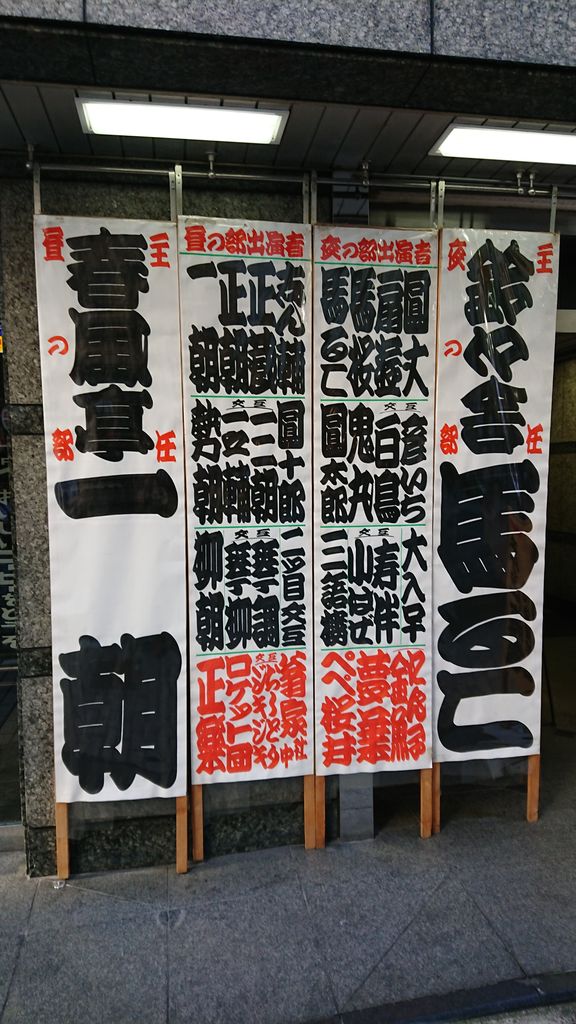 主任
夜の部
鈴々舎馬るこ
夜の部出演者
扇遊
馬桜
馬るこ
交互
彦いち
白鳥
鬼丸
圓太郎
交互
大入早
寿伴
小はぜ
三語楼
にゃん子
金魚
夢葉
ペペ桜井
昼の部出演者
志ん輔
正蔵
正朝
一朝
交互
圓十郎
一之輔
勢朝
交互
二つ目交互
琴調
琴柳
柳朝
交互
翁家社中
ジキジキ
ロケット団
正楽
主任
昼の部
春風亭一朝